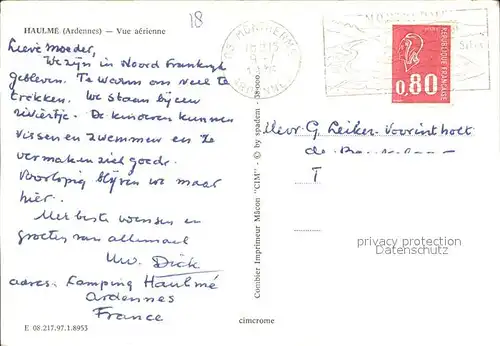 18
HAULMÉ (Ardennes) — Vue aérienne
Lieve Moeder,
We zijn in Noord Frankrijk
gebleven. Te warm om veel te
trekken. We staan bij een
riviertje. De kinderen kunnen
vissen en zwemmen en ze
vermaken zich goed.
Voorlopig blijven we maar
hier.
Met beste wensen en
groeten van allemaal
Uw. Dick
adres: Camping Haulmé
Ardennes
France
E 08.217.97.1.8953
Combier Imprimeur Mâcon "CIM" - © by spadem -
cimcrome
MONTHERME
ARDENNES
RÉPUBLIQUE FRANÇAISE
0,80
Mevr G. Leiker-Voorintholt
de
T
privacy protection
Datenschutz